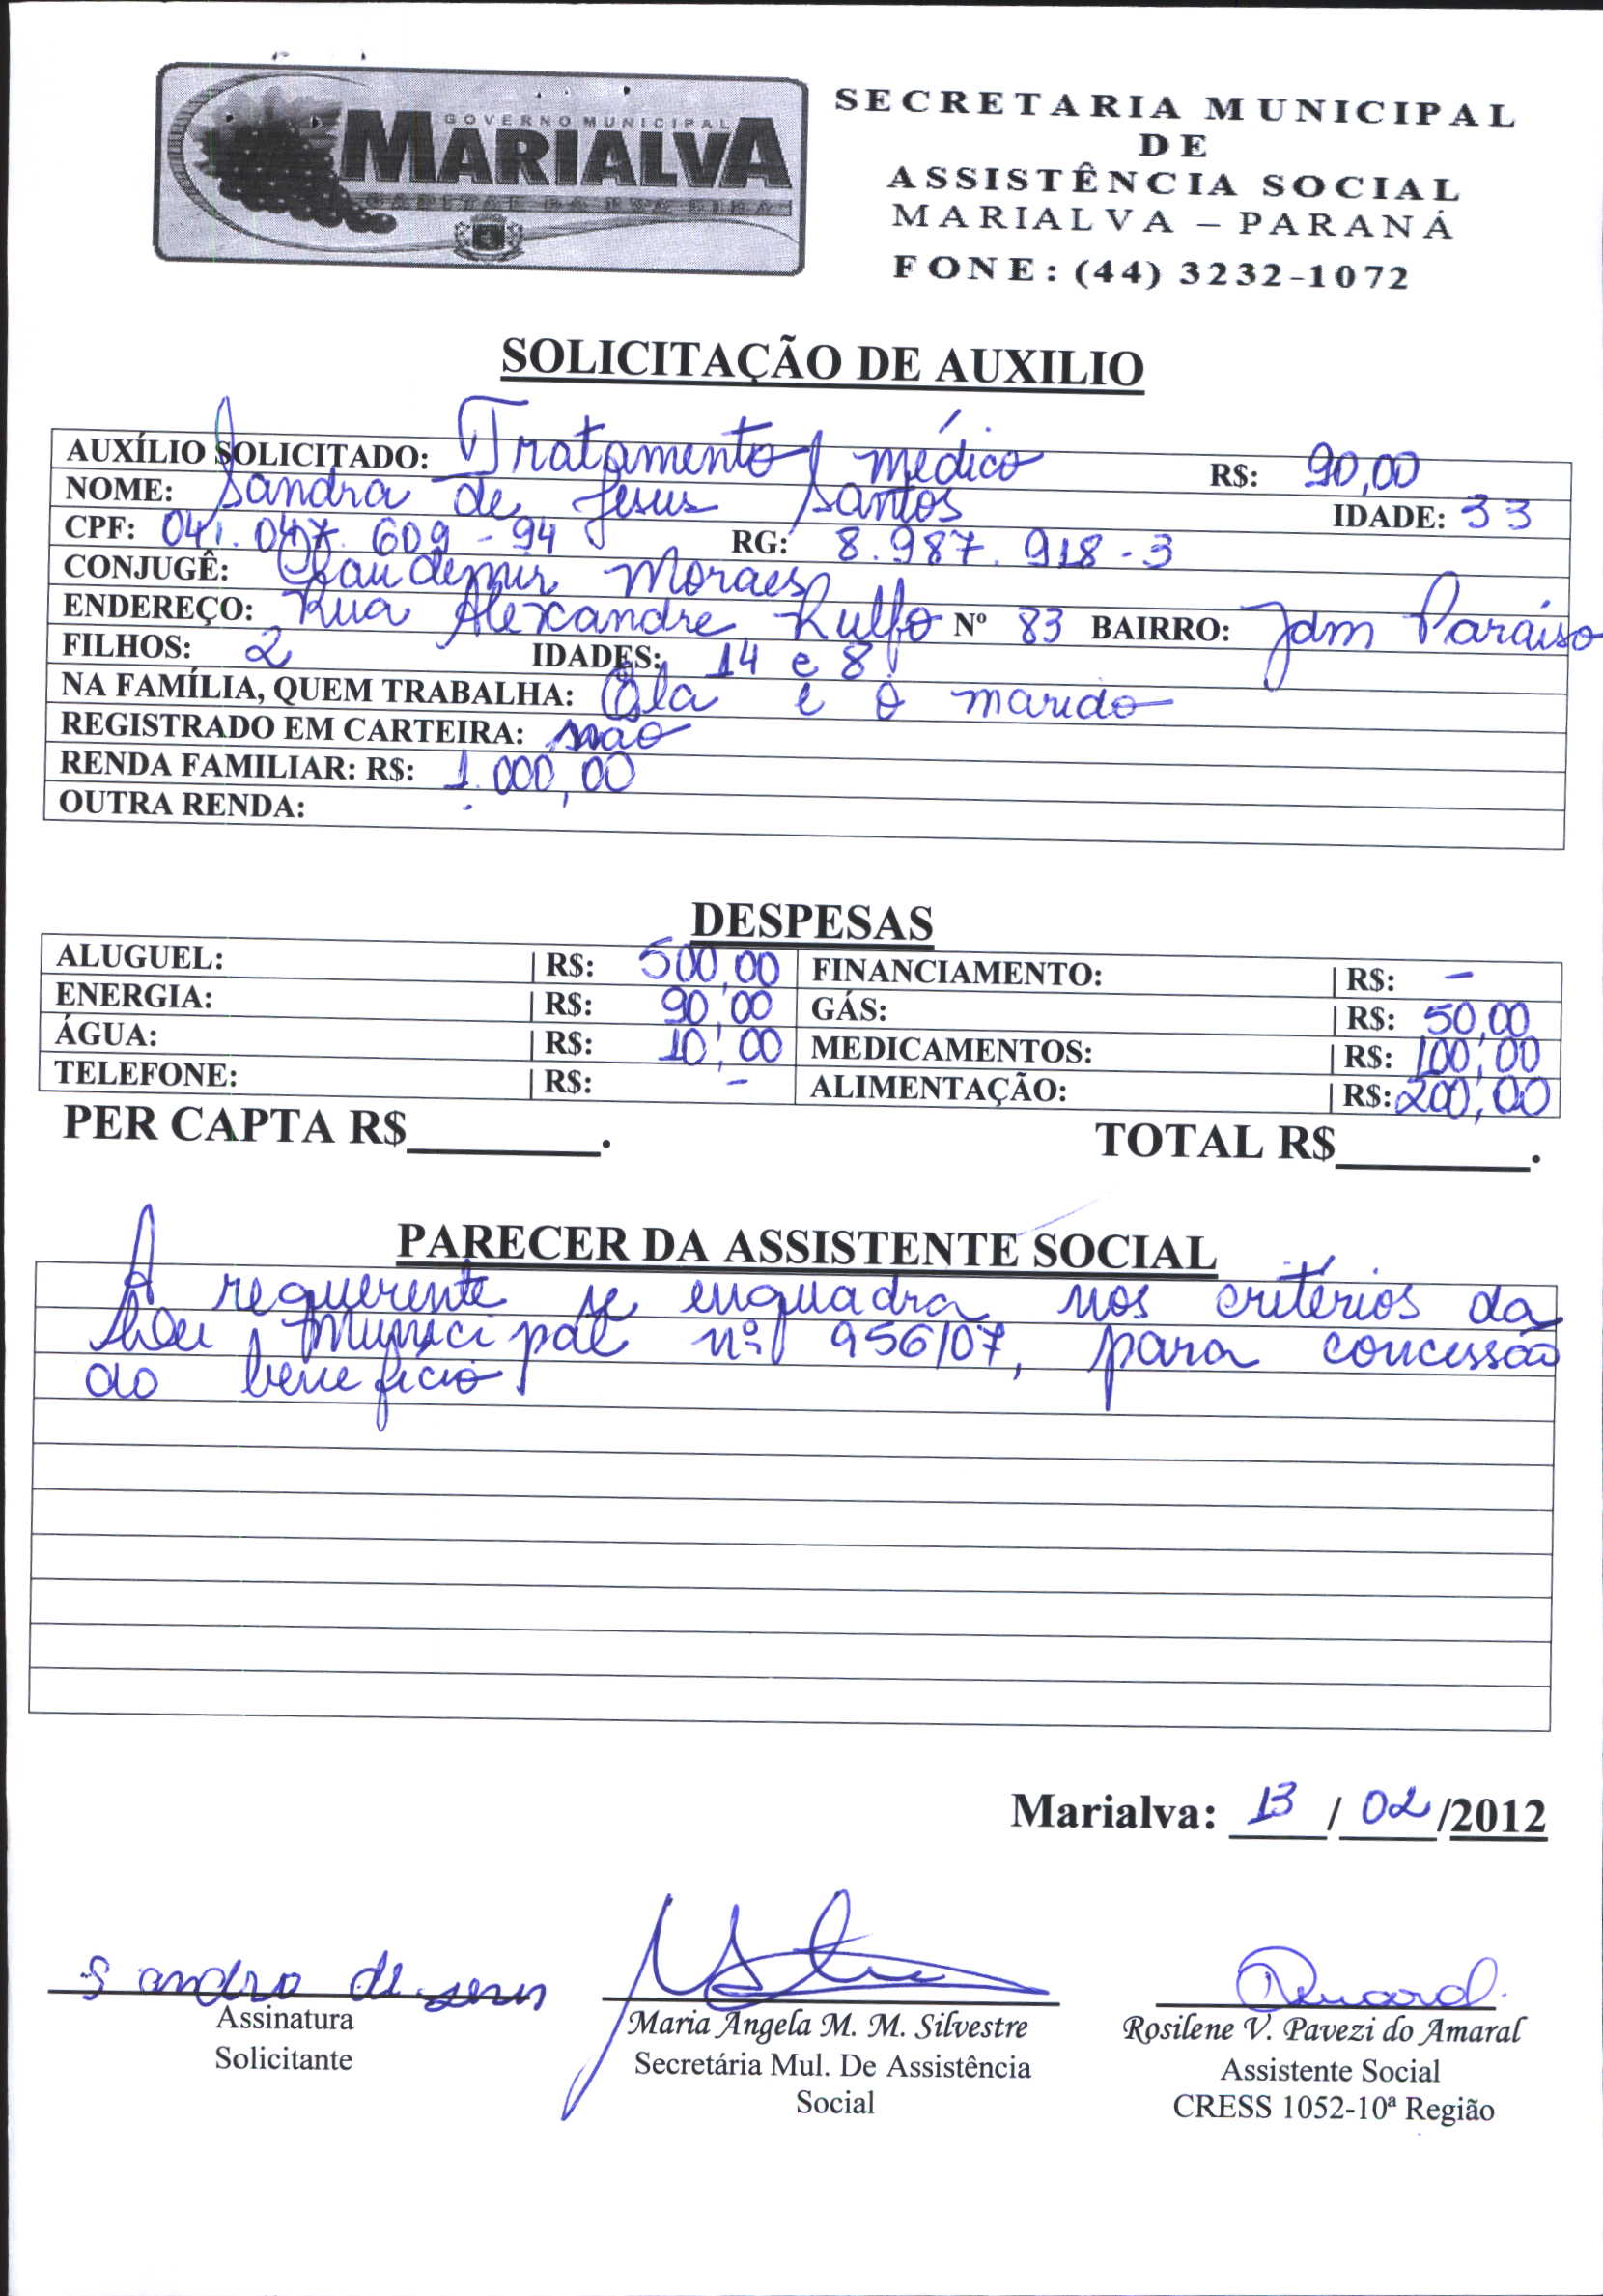 GOVERNO MUNICIPAL
MARIALVA
CAPITAL DA UVA FINA
SECRETARIA MUNICIPAL
DE
ASSISTÊNCIA SOCIAL
MARIALVA – PARANÁ
FONE: (44) 3232-1072
SOLICITAÇÃO DE AUXILIO
AUXÍLIO SOLICITADO: Tratamento médico R$: 90,00
NOME: Sandra de Jesus Santos IDADE: 33
CPF: 041.047.609-94 RG: 8.987.918-3
CONJUGÊ: Claudemir Moraes
ENDEREÇO: Rua Alexandre Rulfo Nº 83 BAIRRO: Jdm Paraíso
FILHOS: 2 IDADES: 14 e 8
NA FAMÍLIA, QUEM TRABALHA: Ela e o marido
REGISTRADO EM CARTEIRA: não
RENDA FAMILIAR: R$: 1.000,00
OUTRA RENDA:
DESPESAS
ALUGUEL: | R$: 500,00 FINANCIAMENTO: | R$: -
ENERGIA: | R$: 90,00 GÁS: | R$: 50,00
ÁGUA: | R$: 10,00 MEDICAMENTOS: | R$: 100,00
TELEFONE: | R$: - ALIMENTAÇÃO: | R$: 200,00
PER CAPTA R$________. TOTAL R$________.
PARECER DA ASSISTENTE SOCIAL
A requerente se enquadra nos critérios da
Lei Municipal nº 956/07, para concessão
do benefício.
Marialva: 13/02/2012
Sandra de
Assinatura
Solicitante
Maria Angela M. M. Silvestre
Secretária Mul. De Assistência
Social
Rosilene V. Pavezi do Amaral
Assistente Social
CRESS 1052-10ª Região